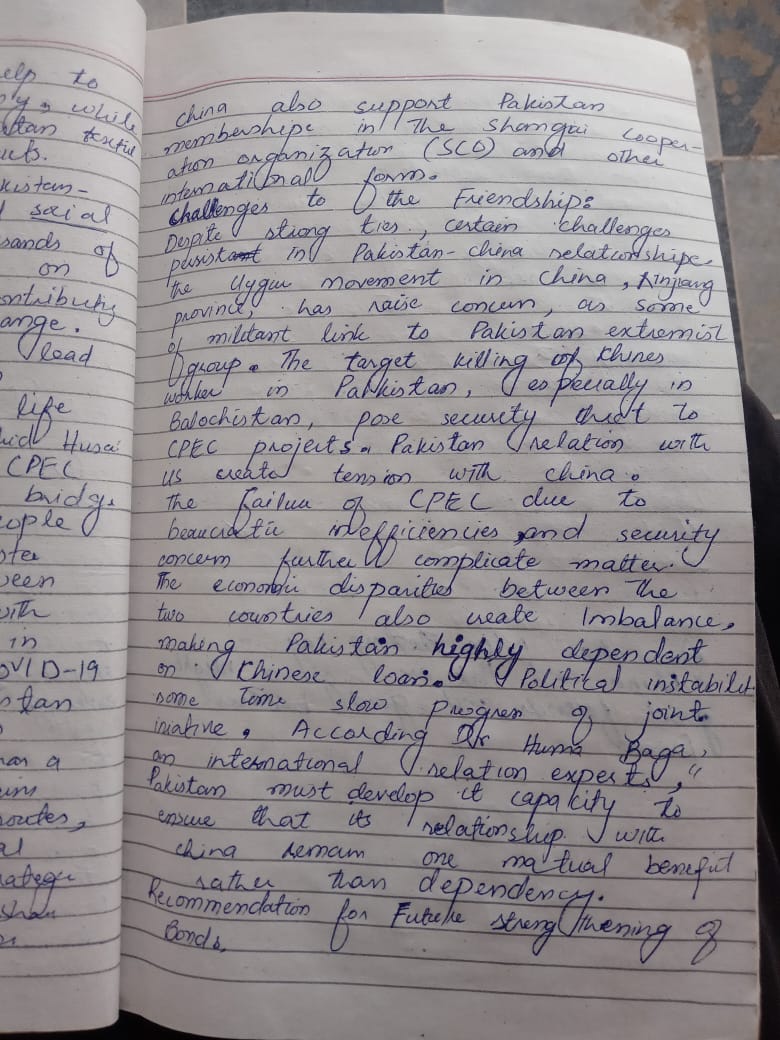 elp to
y, while
stan textil
uts.
kistan-
d social
sands of
on
ontributing
ange.
lead
life
hid Husai
CPEC
bridg.
eople
ster
ween
with
in
OVID-19
stan
has a
routes,
al
rategi
China also support Pakistan
membershipe in The Shangai Cooper-
ation organization (SCO) and other
international form.
Challenges to the Friendship:
Despite strong ties, certain challenges
persist in Pakistan-China relationshipe.
the Uygur movement in China, Xinjiang
province, has raise concern, as some
of militant link to Pakistan extremist
group. The target killing of Chines
worker in Pakistan, especially in
Balochistan, pose security threat to
CPEC projects. Pakistan relation with
US create tension with China.
the failure of CPEC due to
beaucratic inefficiencies and security
concern further complicate matter.
The economic disparities between the
two countries also create Imbalance,
making Pakistan highly dependent
on Chinese loan. Political instabilit
some time slow progress of joint
iniative. According Dr Huma Baga,
an international relation experts, "
Pakistan must develop it capacity to
ensure that its relationship with
china remain one mutual benefit
rather than dependency.
Recommendation for Future strengthening of
Bonds.